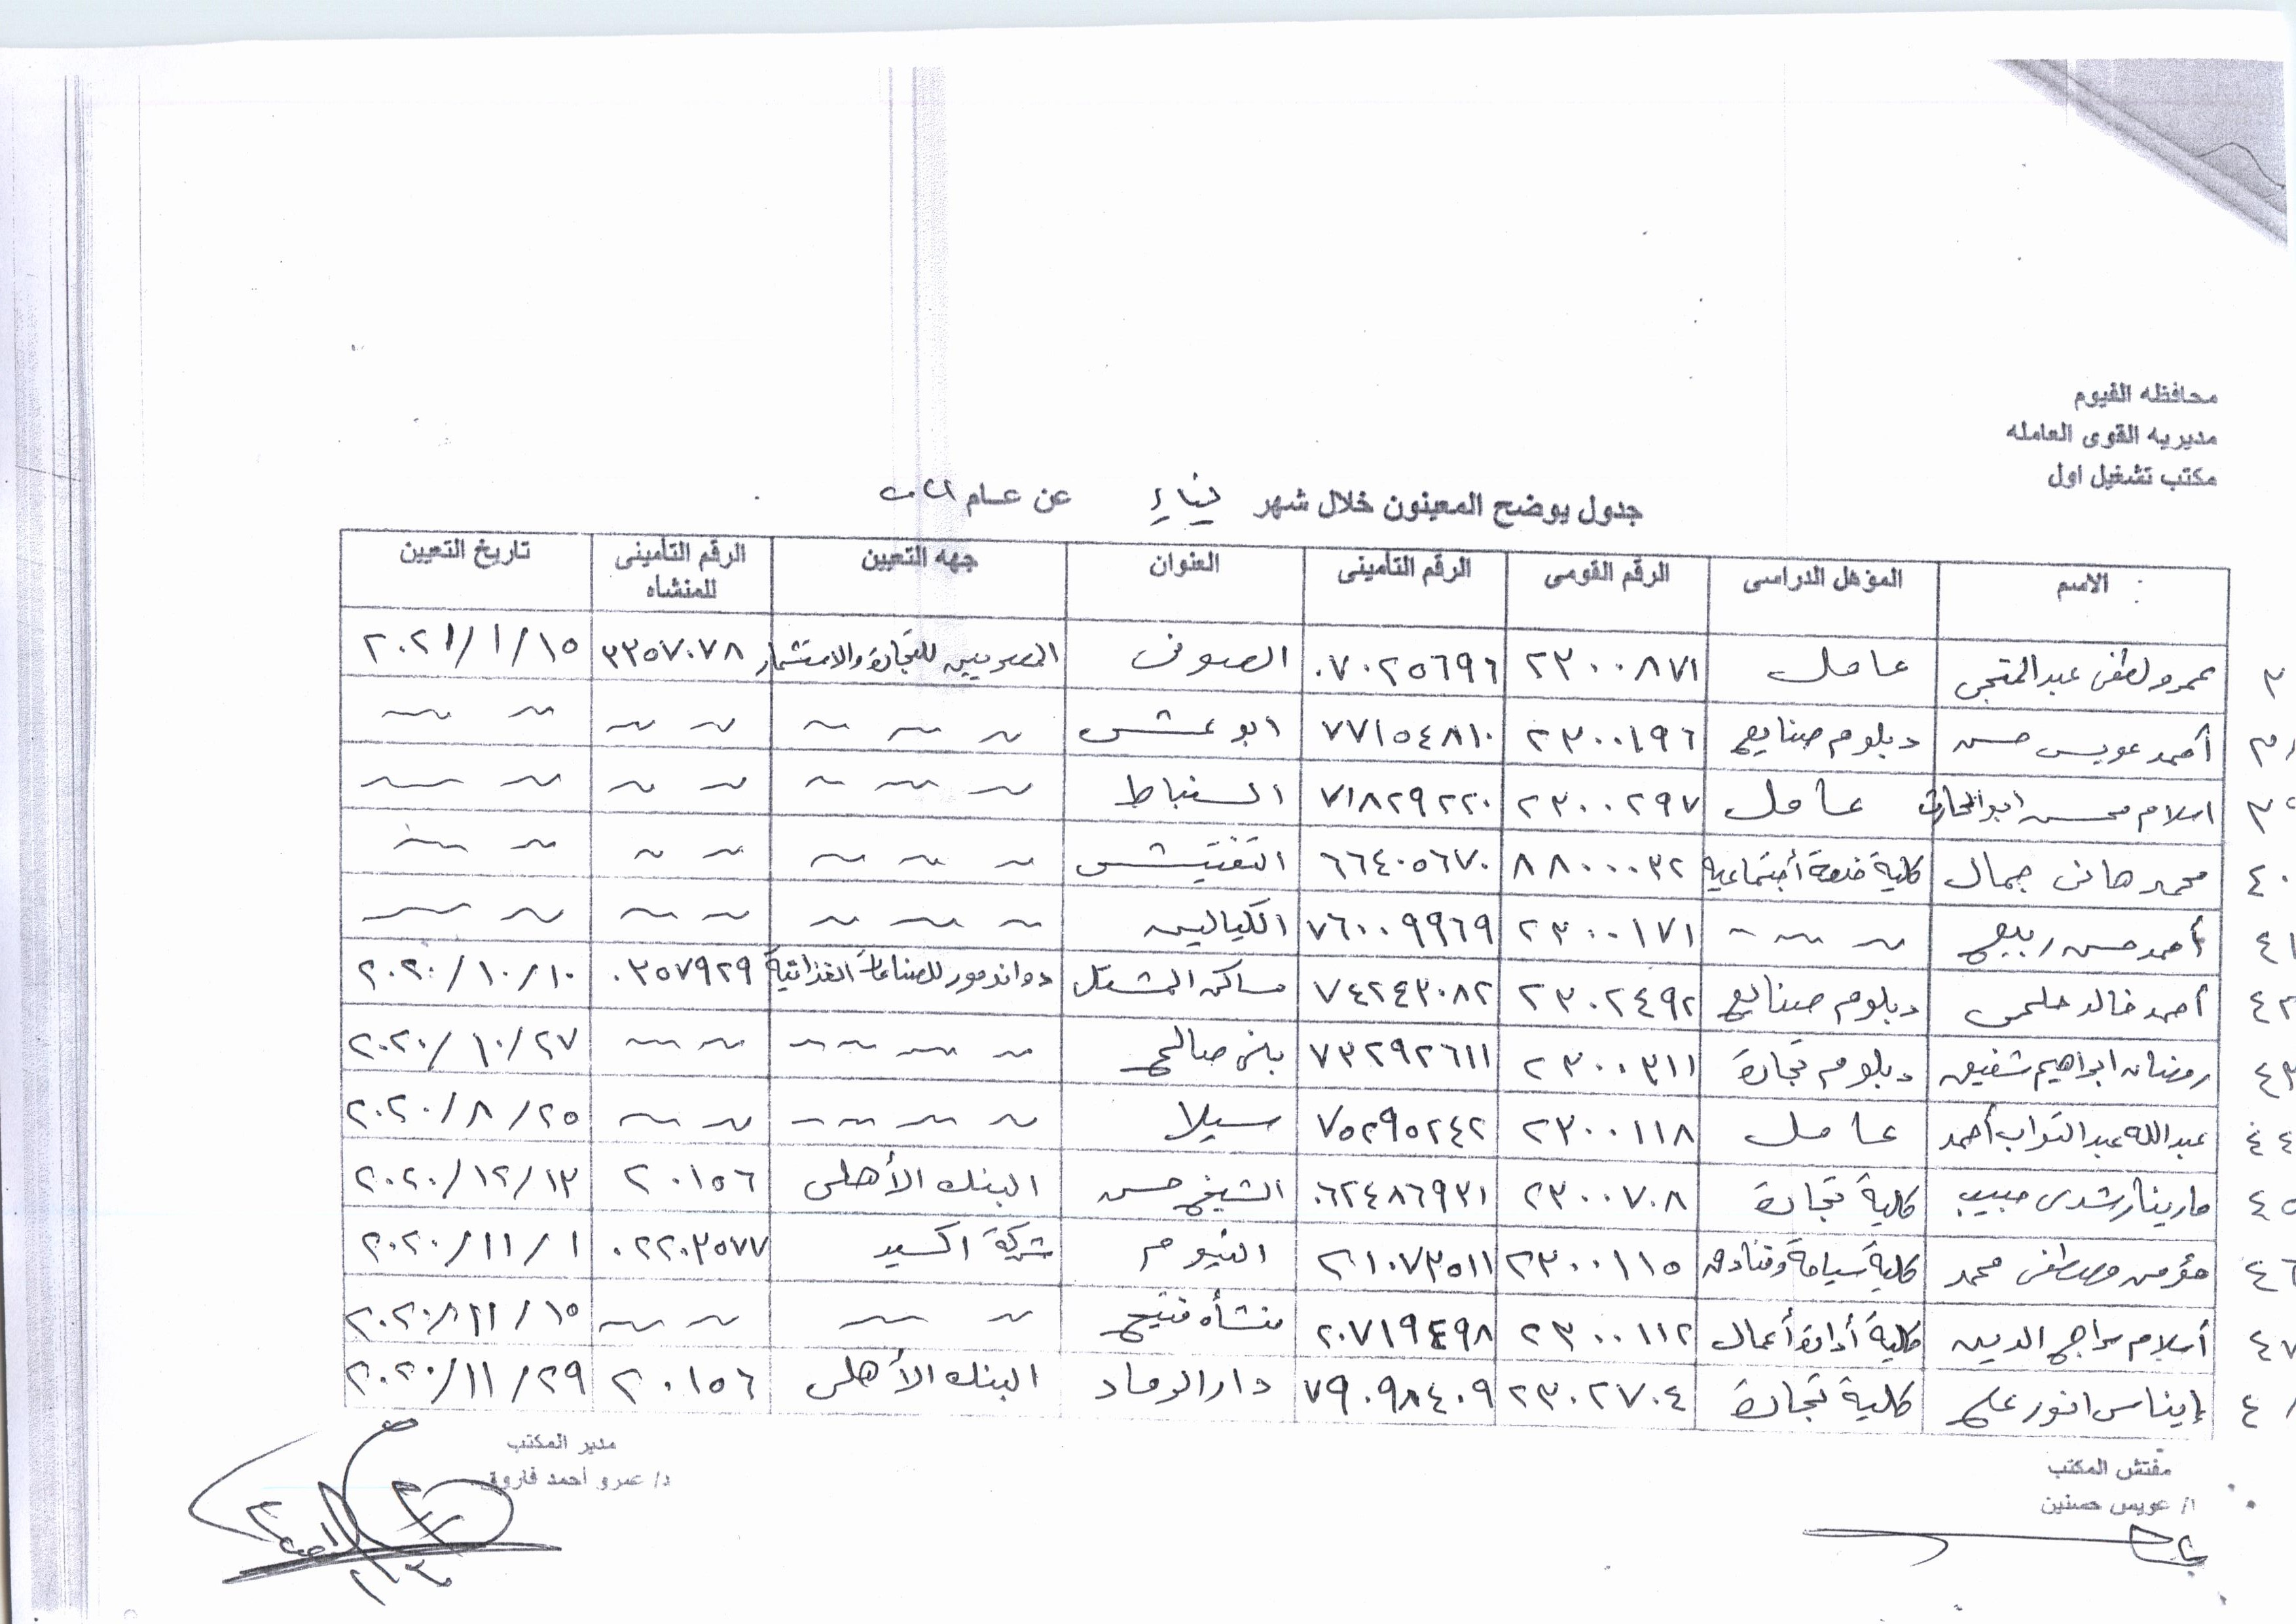 محافظه الفيوم
مديريه القوى العامله
مكتب تشغيل اول
جدول يوضح المعينون خلال شهر يناير عن عام ٢٠٢١
الاسم المؤهل الدراسى الرقم القومى الرقم التأمينى العنوان جهه التعيين الرقم التأمينى للمنشاه تاريخ التعيين
٣ عمرو لطفى عبد المنجى عامل ٢٣٠٠٨٧١ ٠٧٠٢٥٦٩٦ الصوفى المصريين للتجارة والاستثمار ٣٣٥٧٠٧٨ ٢٠٢١/١/١٥
٣٨ أحمد عويس حسن دبلوم صنايع ٢٣٠٠١٩٦ ٧٧١٥٤٨١٠ ابو عش ~ ~ ~ ~ ~ ~ ~
٣٩ اسلام محسن ابو الحارث عامل ٢٣٠٠٢٩٧ ٧١٨٢٩٢٢٠ السنباط ~ ~ ~ ~ ~ ~ ~
٤٠ محمد هانى جمال كلية خدمة أجتماعية ٨٨٠٠٠٣٢ ٦٦٤٠٥٦٧٠ التفتيش ~ ~ ~ ~ ~ ~ ~
٤١ أحمد حسن ربيع ~ ~ ~ ٢٣٠٠١٧١ ٧٦٠٠٩٩٦٩ الكيالين ~ ~ ~ ~ ~ ~ ~
٤٢ أحمد خالد حلمى دبلوم صنايع ٢٣٠٢٤٩٢ ٧٤٢٤٣٠٨٢ مساكن المشتل دواندمور للصناعات الغذائية ٠٣٥٧٩٢٩ ٢٠٢٠/١٠/١٠
٤٣ رمضان ابراهيم شفيق دبلوم تجارة ٢٣٠٠٣١١ ٧٣٢٩٢٦١١ بنى صالح ~ ~ ~ ~ ~ ~ ٢٠٢٠/١٠/٢٧
٤٤ عبد الله عبد التواب أحمد عامل ٢٣٠٠١١٨ ٧٥٢٩٥٢٤٢ سيلا ~ ~ ~ ~ ~ ~ ٢٠٢٠/٨/٢٥
٤٥ مارينا رشدى حبيب كلية تجارة ٢٣٠٠٧٠٨ ٠٦٢٤٨٦٩٣١ الشيخ حسن البنك الأهلى ٢٠١٥٦ ٢٠٢٠/١٢/١٣
٤٦ مؤمن مصطفى محمد كلية سياحة وفنادق ٢٣٠٠١١٥ ٢١٠٧٣٥١١ الفيوم شركة اكسيد ٠٢٢٠٣٥٧٧ ٢٠٢٠/١١/١
٤٧ أسلام سراج الدين كلية أدارة أعمال ٢٣٠٠١١٢ ٢٠٧١٩٤٩٨ منشأة فتيح ~ ~ ~ ~ ٢٠٢٠/١١/١٥
٤٨ إيناس انور على كلية تجارة ٢٣٠٢٧٠٤ ٧٩٠٩٨٤٠٩ دار الرماد البنك الأهلى ٢٠١٥٦ ٢٠٢٠/١١/٢٩
مفتش المكتب
ا/ عويس حسنين
مدير المكتب
د/ عمرو احمد فاروق